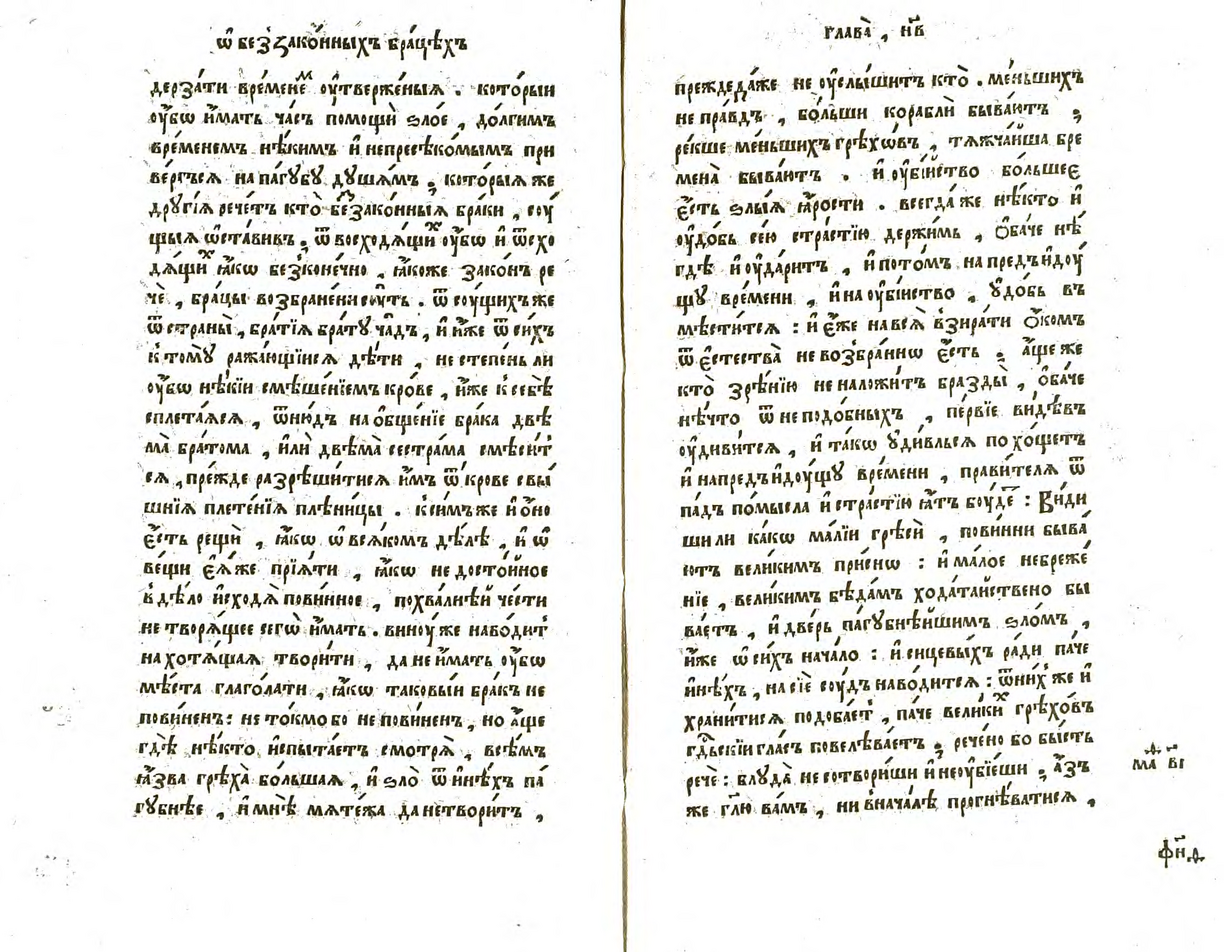 ѿ без̾зако́нныхъ бра́цѣхъ
дерза́ти вре́менемъ оу҆тверже́ныѧ . кото́рыи
оу҆́бѡ и҆́мать ча́съ помощи̑ ѕло́е , до́лгимъ
вре́менемъ нѣ́кимъ и҆ непресѣко́мымъ при
ве́ргъсѧ на па́гꙋбꙋ дꙋша́мъ ; кото́рыѧ же
дрꙋгі́ѧ рече́тъ кто̀ беззако́нныѧ бра́ки , соу́
щыѧ ѡ҆ста́вивъ . ѿ восходѧ́щихъ оу҆́бѡ и҆ ѿ схо
дѧ́щихъ ꙗ҆́кѡ без̾коне́чно , ꙗ҆́коже зако́нъ ре
чѐ , бра́цы возбране́ни соу́ть . ѿ соу́щихъ же
ѿ страны̀ , бра́тїѧ бра́тꙋ ча́дъ , и҆ и҆̀же ѿ си́хъ
к̾ томꙋ̀ ража́ющїисѧ дѣ́ти , не степе́нь ли
оу҆́бѡ нѣ́кїи смѣше́нїемъ кро́ве , и҆̀же к̾ себѣ̀
сплета́ѧсѧ , ѿню́дъ на ѻ҆бще́нїе бра́ка двѣ
ма̀ бра́тома , и҆лѝ двѣма̀ сестра́ма смѣси́т
сѧ , пре́жде разрѣши́тисѧ и҆̀мъ ѿ кро́ве свы́
шнїѧ плете́нїѧ плѣни́цы . к̾ си́мъ же и҆ ѻ҆но̀
є҆́сть рещѝ , ꙗ҆́кѡ ѡ҆ всѧ́комъ дѣ́лѣ , и҆ ѡ҆
ве́щи є҆ѧ́же прїѧ́ти , ꙗ҆́кѡ не досто́йное
в̾ дѣ́ло и҆сходѧ̀ пови́нное , похва́лнѣй че́сти
не творѧ́щее сегѡ̀ и҆́мать . виноу́ же наво́дит
на хотѧ́щаѧ твори́ти , да не и҆́мать оу҆́бѡ
мѣ́ста глаго́лати , ꙗ҆́кѡ таковы́и бра́къ не
пови́ненъ : не то́кмо бо не пови́ненъ , но а҆́ще
гдѣ̀ нѣ́кто и҆спыта́етъ смотрѧ̀ , всѣ́мъ
ꙗ҆́зва грѣха̀ бо́льшаѧ , и҆ ѕло̀ ѿ и҆нѣ́хъ па́
гꙋбнѣе , и҆ мнѣ̀ мѧте́жа да не твори́тъ ,
глава̀ , н҃в
прежде да́же не оу҆слы́шитъ кто̀ . ме́ньшихъ
не пра́вдъ , бо́льши кораблѝ быва́ютъ ;
ре́кше ме́ньшихъ грѣхѡ́въ , тѧжча́йша бре
мена̀ быва́ютъ . и҆ оу҆бі́йство бо́льшее
є҆́сть ѕлы́ѧ ꙗ҆́рости . всегда́ же нѣ́кто и҆
оу҆до́бь сею̀ стра́стїю держи́мь , ѻ҆ба́че нѣ́
гдѣ и҆ оу҆да́ритъ , и҆ пото́мъ на предъидоу́
щꙋ вре́мени , и҆ на оу҆бі́йство , ꙋ҆до́бь въ
мѣсти́тсѧ : и҆ є҆́же на всѧ̀ взира́ти ѻ҆́комъ
ѿ є҆стества̀ не возбра́ннѡ є҆́сть ; а҆́ще же
кто̀ зрѣ́нїю не наложи́тъ бразды̀ , ѻ҆ба́че
нѣ́что ѿ неподо́бныхъ , пе́рвїе ви́дѣвъ
оу҆диви́тсѧ , и҆ та́кѡ ꙋ҆ди́вльсѧ похо́щетъ
и҆ напредъидоу́щꙋ вре́мени , прави́телѧ ѿ
па́дъ по́мысла и҆ стра́стїю ꙗ҆́тъ боу́де : Ви́ди
ши ли ка́кѡ ма́лїи грѣсѝ , пови́нни быва́
ютъ вели́кимъ при́снѡ : и҆ ма́лое небреже́
нїе , вели́кимъ бѣда́мъ хода́тайствено бы
ва́етъ , и҆ две́рь па́гꙋбнѣйшимъ ѕло́мъ ,
и҆̀же ѿ си́хъ нача́ло : и҆ сицевы́хъ ра́ди па́че
и҆нѣ́хъ , на сїѐ соу́дъ наво́дитсѧ : ѿ ни́хже и҆
храни́тисѧ подоба́ет , па́че вели́кихъ грѣхо́въ
гд҇ьскїи гла́съ повелѣва́етъ ; рече́но бо бы́сть
речѐ : блꙋда̀ не сотвори́ши и҆ не оу҆бїе́ши ; а҆́зъ
же гл҃ю ва́мъ , ни внача́лѣ прогнѣ́ватисѧ ,
ма ві
ф҃н д